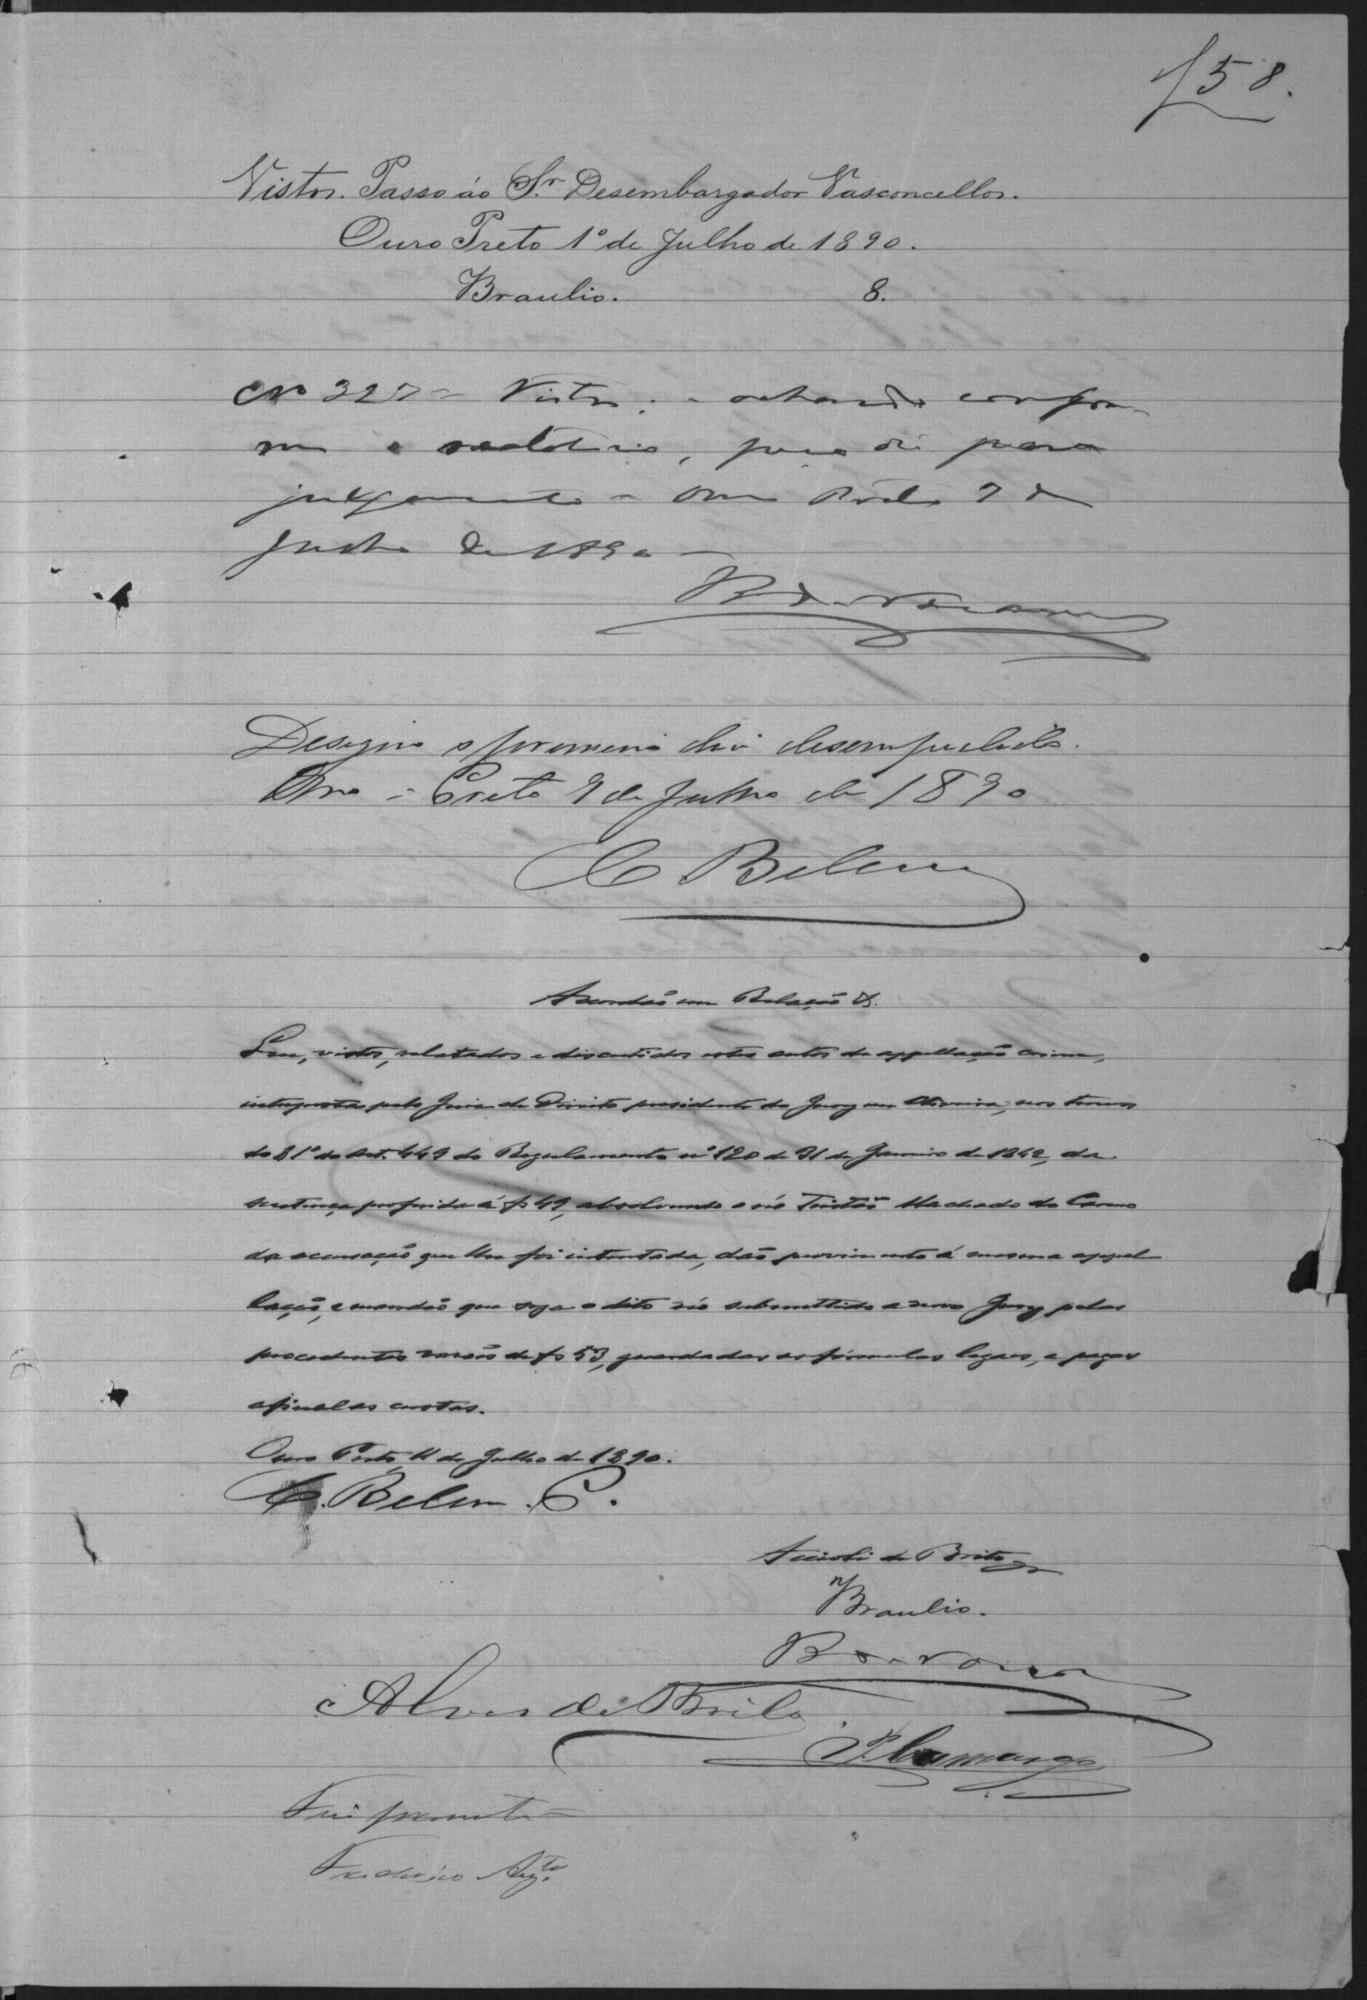 f 58.
Vistos. Passo ao Sr. Desembargador Vasconcellos.
Ouro Preto 1º de Julho de 1890.
Braulio. 8.
Nº 327 = Vistos; e achando confor-
me o relatorio, peço dia para
julgamento = Ouro Preto 7 de
Julho de 1890 =
Designo o primeiro dia desempedido.
Ouro = Preto 9 de Julho de 1890
C Belem
Accordão em Relação &.
Que, vistos, relatados e discutidos estes autos de appellação crime,
interposta pelo Juiz de Direito presidente do Jury em Oliveira, nos termos
do § 1º do Art. 449 do Regulamento nº 120 de 31 de Janeiro de 1842, da
sentença proferida á fs 49, absolvendo o réo Tristão Machado do Carmo
da accusação que lhe foi intentada, dão provimento á mesma appel
lação, e mandão que seja o dito réo submettido a novo Jury pelas
procedentes rasões de fs 53, guardadas as formulas legaes, e pagas
afinal as custas.
Ouro Preto, 11 de Julho de 1890.
C. Belem. P.
Accioli de Brito
Braulio.
Alves de Brito
P. Camargo
Fui presente =
Frederico Augto.